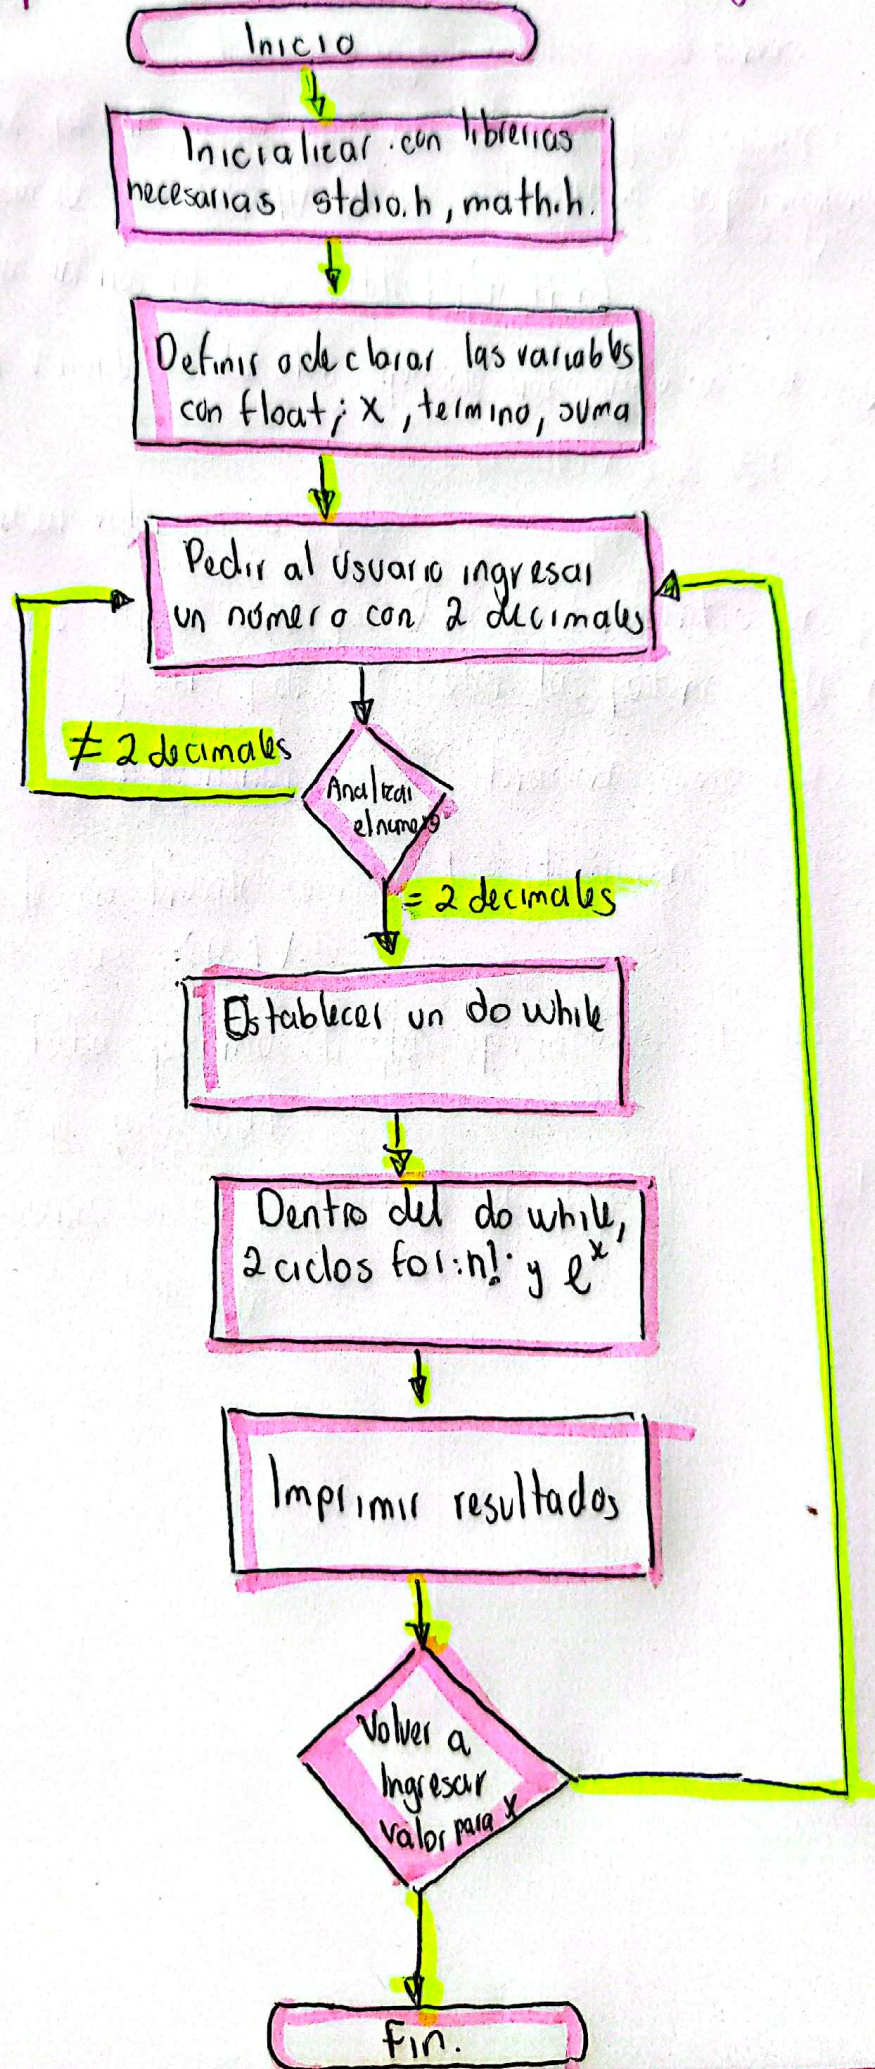 Inicio
Inicializar con librerias
necesarias stdio.h, math.h.
Definir o declarar las variables
con float; x, termino, suma
Pedir al usuario ingresar
un número con 2 decimales
≠ 2 decimales
Analizar
el numero
= 2 decimales
Establecer un do while
Dentro del do while,
2 ciclos for: n! y e^x
Imprimir resultados
Volver a
Ingresar
valor para x
Fin.